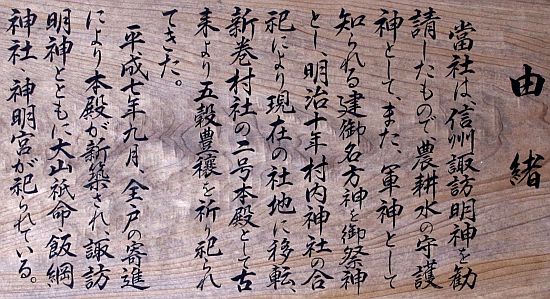 由緒
當社は、信州諏訪明神を勧
請したもので、農耕水の守護
神として、また、軍神として
知られる建御名方神を御祭神
とし、明治十年村内神社の合
祀により現在の社地に移転、
新巻村社の二号本殿として古
来より五穀豊穣を祈り祀られ
てきた。
平成七年九月、全戸の寄進
により本殿が新築され、諏訪
明神とともに大山祇命、飯綱
神社、神明宮が祀られている。